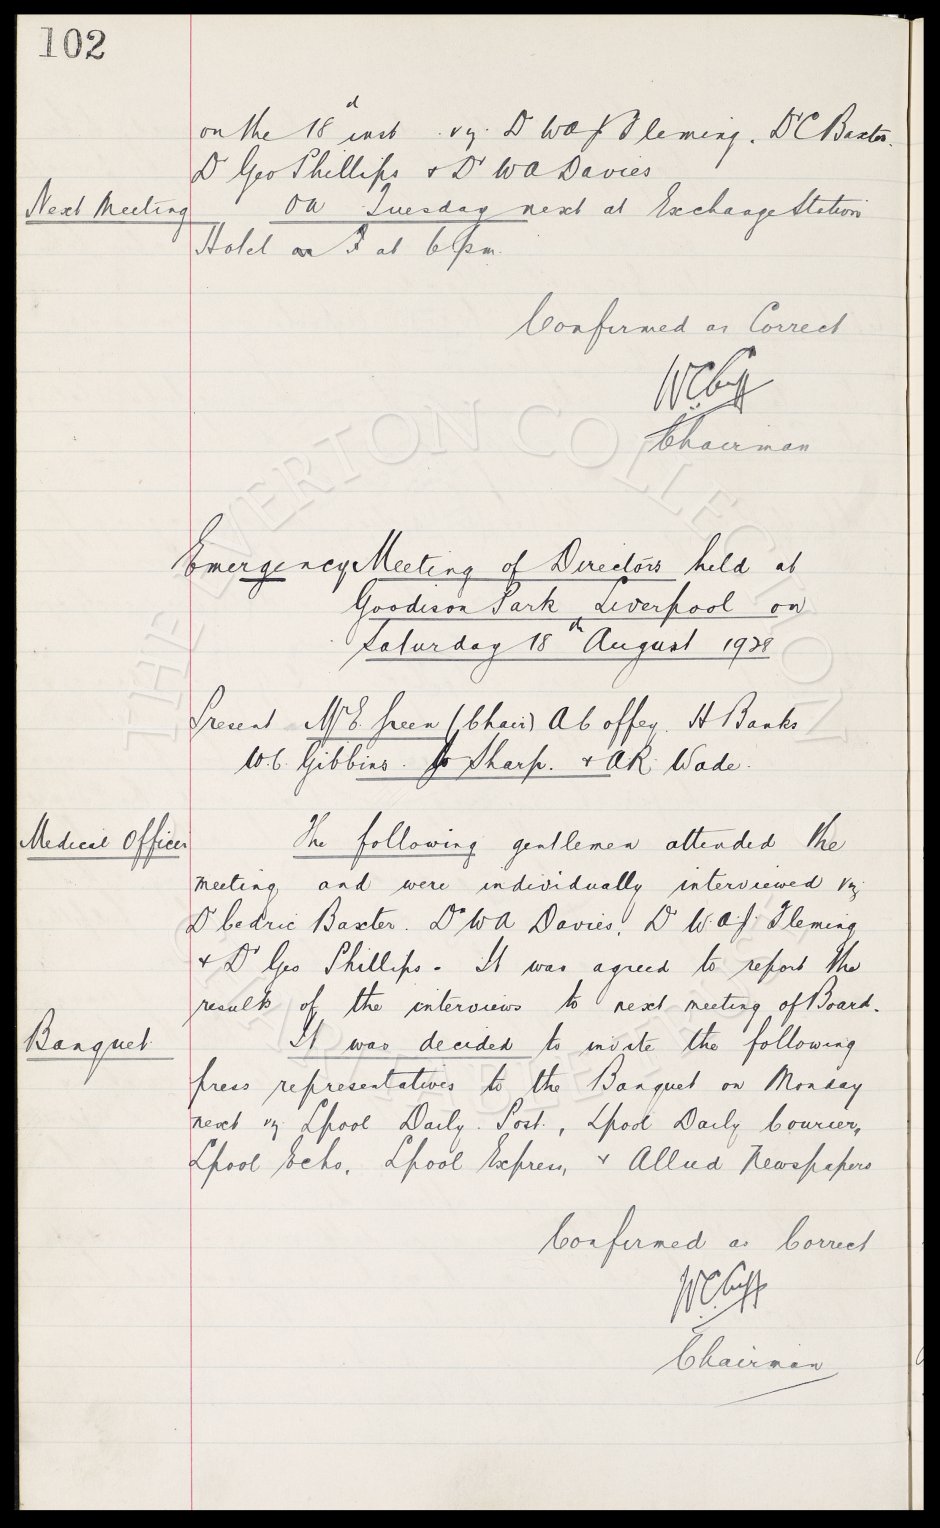 102
on the 18th inst. viz. Dr W A J Fleming. Dr C Baxter.
Dr Geo Phillips & Dr W A Davies
Next Meeting On Tuesday next at Exchange Station
Hotel at 6 pm.
Confirmed as Correct
W C Cuff
Chairman
Emergency Meeting of Directors held at
Goodison Park Liverpool on
Saturday 18th August 1928
Present Mr E. Green (Chair) A Coffey. H Banks
W. C. Gibbins. Jo Sharp. & A R. Wade.
Medical Officer The following gentlemen attended the
meeting and were individually interviewed viz
Dr Cedric Baxter. Dr W A Davies. Dr W. A. J. Fleming
& Dr Geo Phillips. It was agreed to report the
results of the interviews to next meeting of Board.
Banquet It was decided to invite the following
press representatives to the Banquet on Monday
next viz Lpool Daily Post, Lpool Daily Courier,
Lpool Echo, Lpool Express, & Allied Newspapers
Confirmed as Correct
W. C. Cuff
Chairman
THE EVERTON COLLECTION
CHARITABLE TRUST